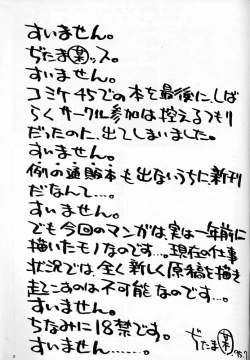 すいません。
ぢたま㊙ッス。
すいません。
コミケ45での本を最後に、しば
らくサークル参加は控えるつもり
だったのに、出てしまいました。
すいません。
例の通販本も出ないうちに、新刊
だなんて…。
すいません。
でも今回のマンガは、実は一年前に
描いたモノなのです…。現在の仕事
状況では、全く新しく原稿を描き
起こすのは不可能なのです…。
すいません。
ちなみに18禁です。
すいません………。
ぢたま